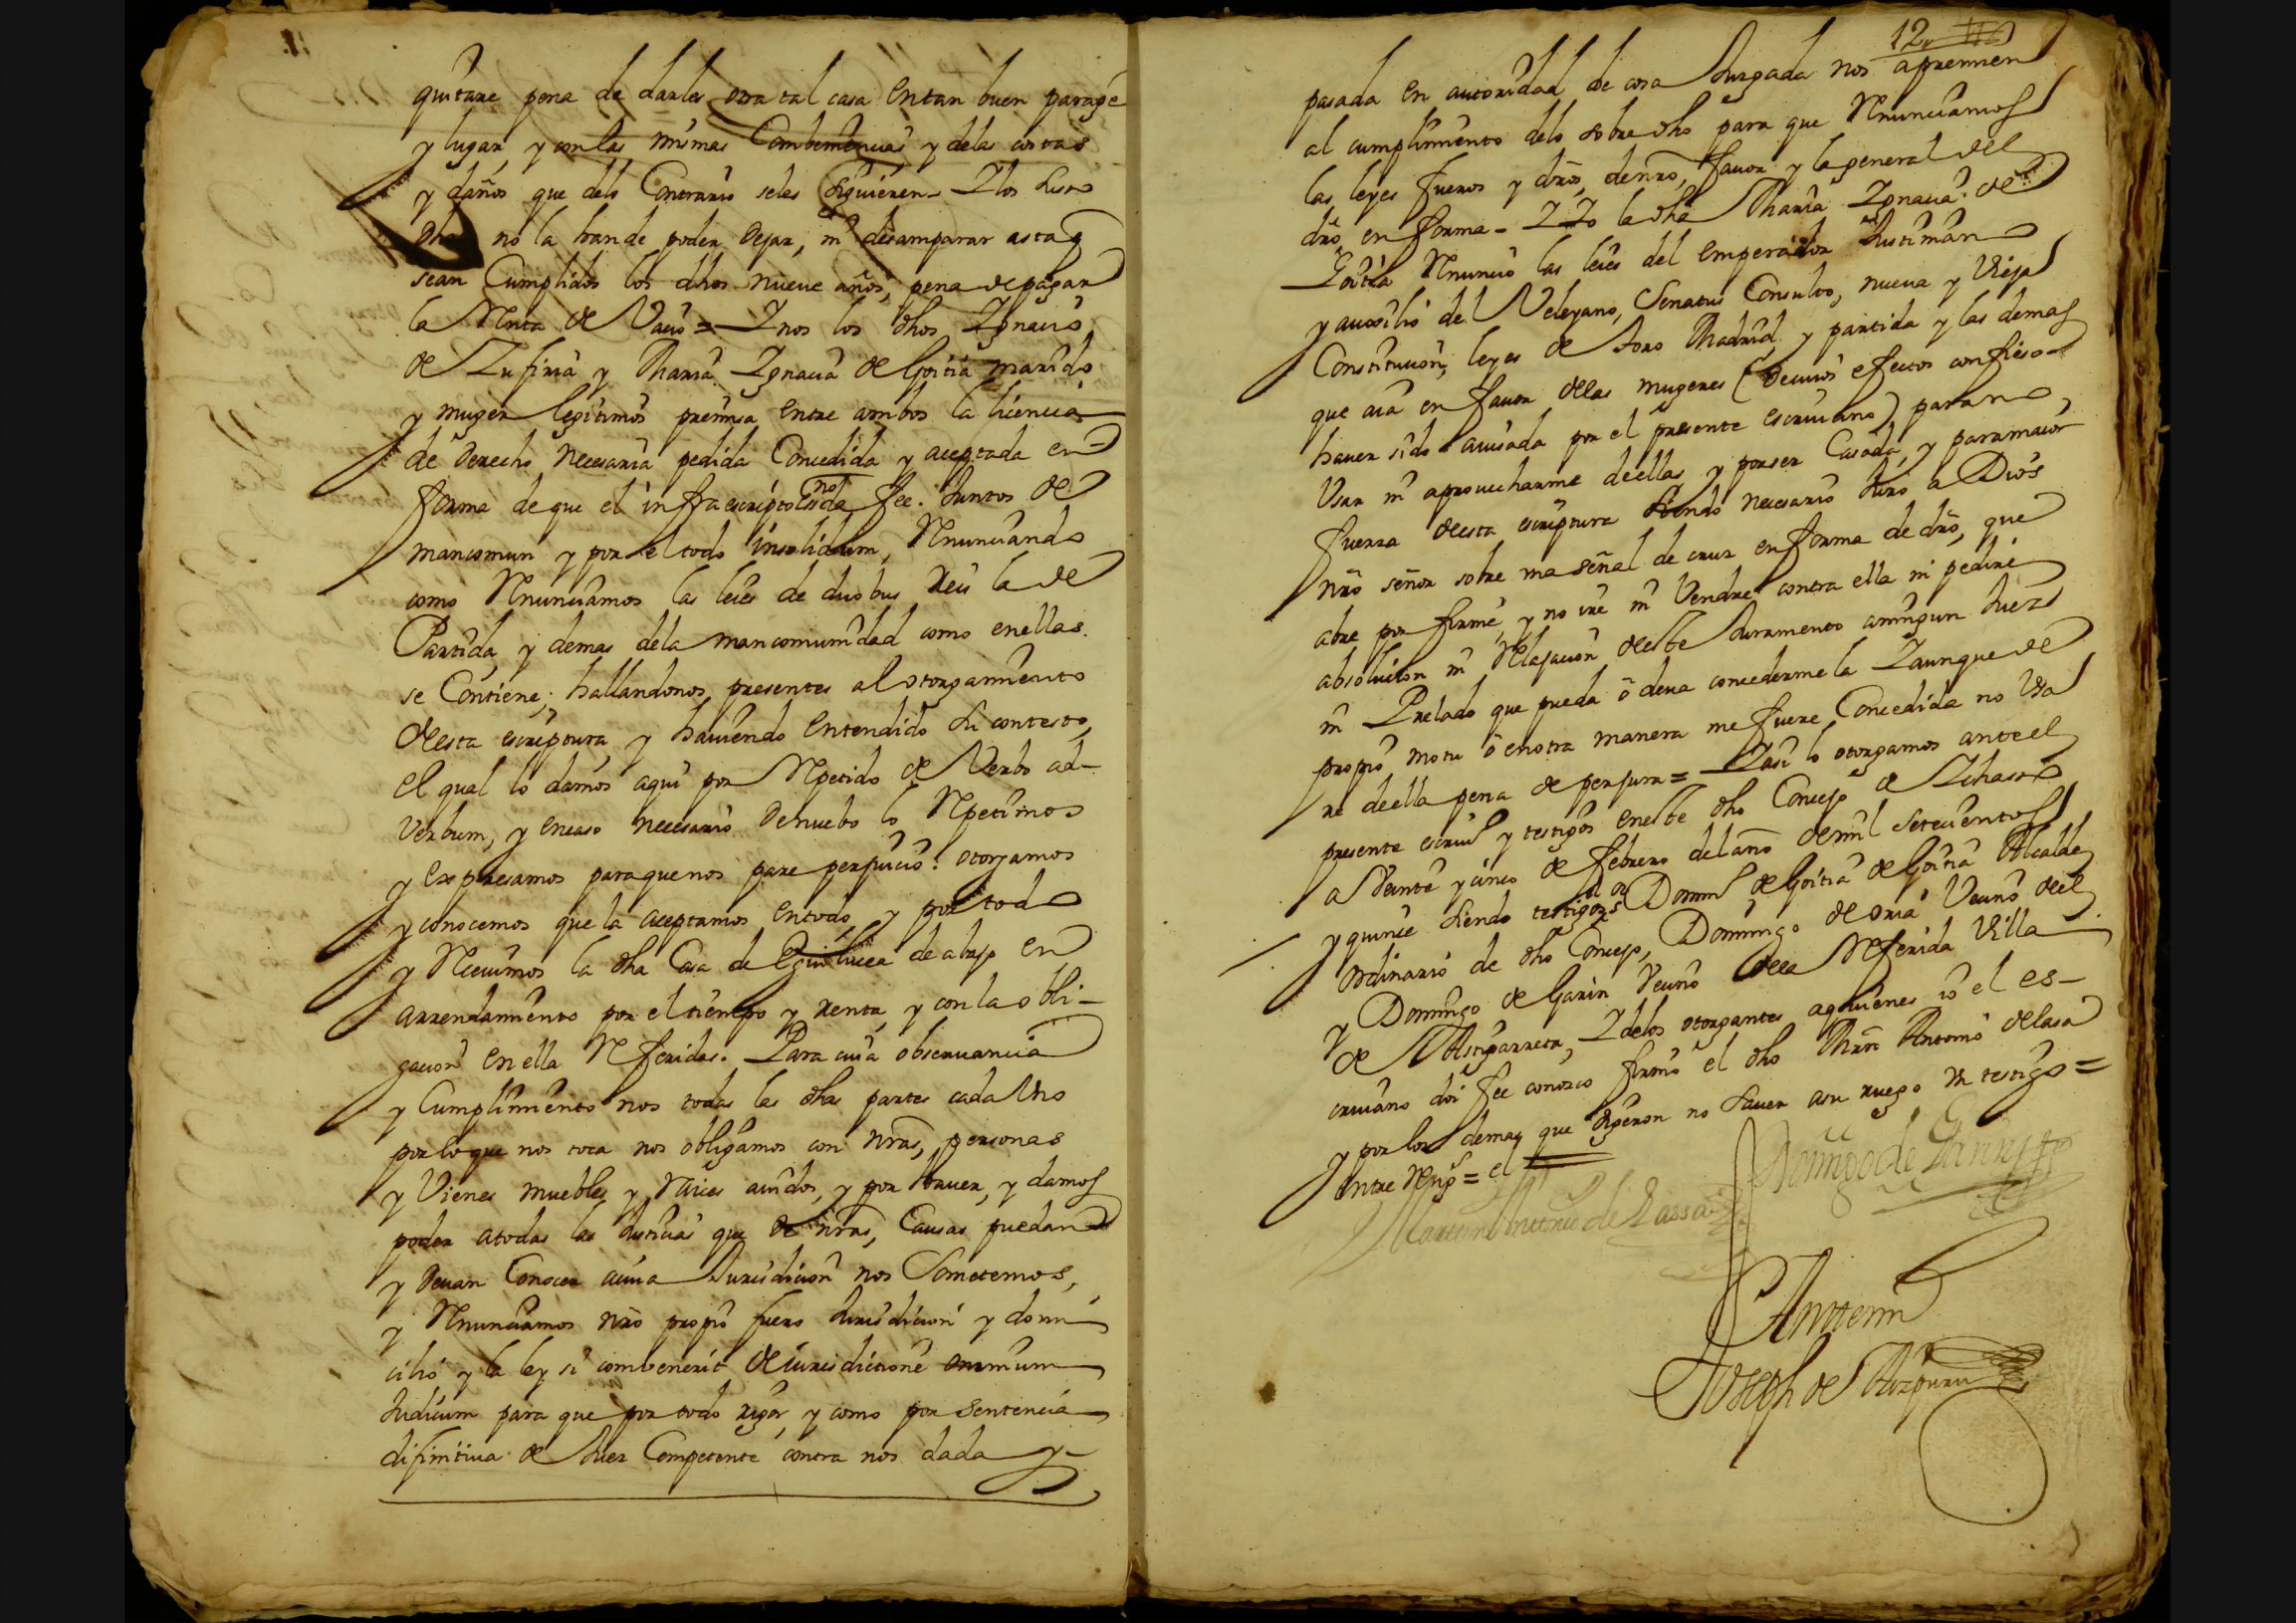 quitare pena de darles otra tal casa en tan buen parage
y lugar, y con las mismas Combeniencias y delas costas
y daños que delo Contrario seles siguieren - Y los suso
dhos no la han de poder dejar, ni desamparar asta q
sean Cumplidos los dhos nueve años, pena de pagar
la Renta de Vacio = Y nos los dhos Ygnacio
de Zufiria y Maria Ygnacia de Goitia marido
y muger legitimos premisa entre ambos la licencia
de derecho necesaria pedida Concedida y aceptada en
forma de que el infraescripto esno da fee. Juntos de
mancomun y por el todo insolidum, Renunciando
como Renunciamos las leies de duobus Reis la de
Partida, y demas dela mancomunidad como enellas
se Contiene; hallandonos, presentes al otorgamiento
desta escriptura, y haviendo entendido su contesto,
el qual lo damos aqui por Repetido de Verbo ad-
verbum, y encaso necesario denuebo lo Repetimos
y expresamos paraque nos pare perjuicio: otorgamos
y conocemos que la aceptamos entodo, y por todo
y Recivimos la dha Casa de de abajo en
arrendamiento por el tiempo y renta, y con la obli-
gacion en ella Referidas. Para cuia observancia
y Cumplimiento nos todas las dhas partes cada Uno
por lo que nos toca nos obligamos con nras, personas
y Vienes muebles y Raices avidos, y por haver, y damos
poder a todas las Justicias que de nras, Causas puedan
y devan Conocer acuia Jurisdicion nos Sometemos,
y Renunciamos nro propio fuero Jurisdicion y domi
cilio y la ley si combenerit de iurisdictione omnium
Judicum para que por todo rigor, y como por Sentencia
difinitiva de Juez Competente contra nos dada y-
12
pasada en autoridad de cosa Juzgada nos apremien
al cumplimiento delo sobredho para que Renunciamos
las leyes fueros y dros, denro, favor y la general del
dro en forma - Y Yo la dha Maria Ygnacia de
Goitia Renuncio las leies del emperador Justiniano
y auxilio del Veleyano, Senatus Consulto, nueva y Vieja
Constitucion, leyes de toro Madrid, y partida y las demas
que aia en favor delas mugeres (de cuios efectos confieso
haver sido avisada por el presente escrivano) para no,
Usar ni aprovecharme deellas, y por ser Casada, y para maior
fuerza desta escriptura siendo necesario Juro a Dios
nro señor sobre una señal de cruz en forma de dro, que
abre por firme, y no ire ni Vendre contra ella ni pedire
absolucion ni Relajacion deste Juramento a ningun Juez
ni Prelado que pueda ô deva concedermela Y aunque de
propio motu ô en otra manera me fuere Concedida no Usa
re deella pena de perjura = Y asi lo otorgamos ante el
presente escrivo y testigos eneste dho Concejo de Ichaso
a Veinte y cinco de febrero del año de mil setecientos
y quince siendo testigos Domingo de Goitia de Goitia Alcalde
ordinario de dho Concejo, Domingo de oria Vecino deel
y Domingo de Garin Vecino dela Referida Villa
de Y delos otorgantes aquienes io el es-
crivano doi fee conozco firmo el dho Mrn Antonio delasa
y por los demas que dijeron no saver asu ruego Un testigo =
entre Rengs = el
Domingo de Garin
Martin Antonio de Lassa
Antemi
Joseph de Aizpuru